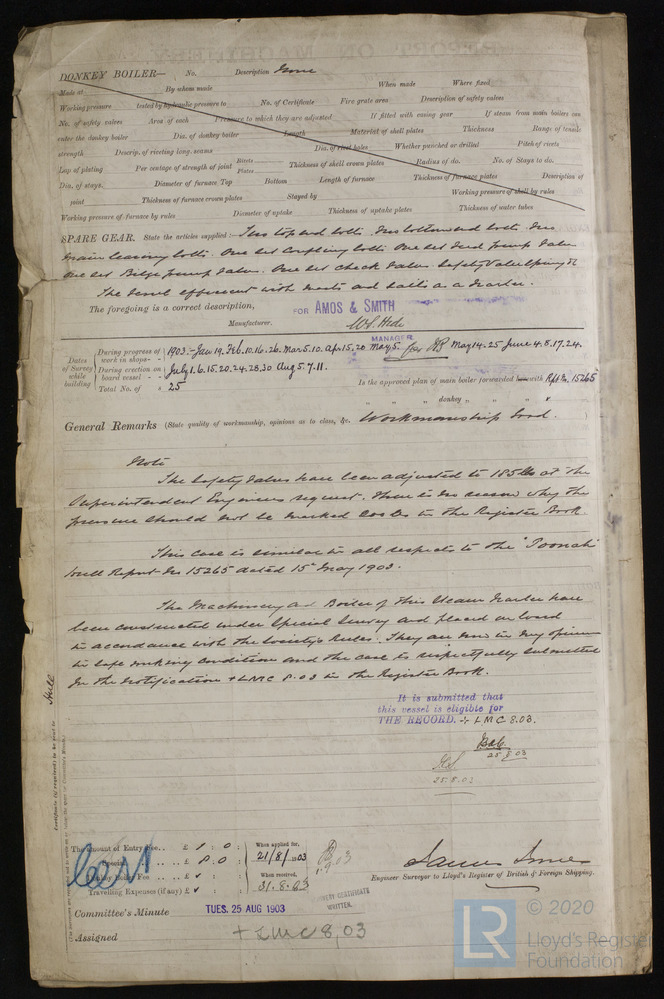 DONKEY BOILER— No. Description None
Made at By whom made When made Where fixed
Working pressure tested by hydraulic pressure to No. of Certificate Fire grate area Description of safety valves
No. of safety valves Area of each Pressure to which they are adjusted If fitted with easing gear If steam from main boilers can
enter the donkey boiler Dia. of donkey boiler Length Material of shell plates Thickness Range of tensile
strength Descrip. of riveting long. seams Dia. of rivet holes Whether punched or drilled Pitch of rivets
Lap of plating Per centage of strength of joint Rivets Plates Thickness of shell crown plates Radius of do. No. of Stays to do.
Dia. of stays. Diameter of furnace Top Bottom Length of furnace Thickness of furnace plates Description of
joint Thickness of furnace crown plates Stayed by Working pressure of shell by rules
Working pressure of furnace by rules Diameter of uptake Thickness of uptake plates Thickness of water tubes
SPARE GEAR. State the articles supplied:— Two top end bolts. Two bottom end bolts. Two
main bearing bolts. One set Coupling bolts. One set feed pump valves
One set Bilge pump valves. One set check valves Safety Valve Spring &c
The vessel efficient with masts and sails as a trawler.
The foregoing is a correct description,
FOR AMOS & SMITH
Manufacturer.
MANAGER
Dates of Survey while building
During progress of work in shops - - 1903:- Jan 19. Feb. 10. 16. 26. Mar 5. 10. Apr 15. 20. May 5. May 14. 25. June 4. 8. 17. 24.
During erection on board vessel - - July 1. 6. 15. 20. 24. 28. 30 Aug 5. 7. 11.
Total No. of 25
Is the approved plan of main boiler forwarded herewith Rpt No. 15265
" " " donkey " " "
General Remarks (State quality of workmanship, opinions as to class, &c. Workmanship Good.
Note
The Safety Valves have been adjusted to 185 lbs at the
Superintendent Engineers request. There is no reason why the
pressure should not be marked 200 lbs in the Register Book.
This case is similar in all respects to the "Toonah"
Hull Report No 15265 dated 15th May 1903.
The Machinery and Boiler of this Steam Trawler have
been constructed under Special Survey and placed on board
in accordance with the Society's Rules. They are now in my opinion
in safe working condition and the case is respectfully submitted
for the notification + LMC 8.03 in the Register Book.
It is submitted that
this vessel is eligible for
THE RECORD. + LMC 8.03.
25.8.03
25.8.03
Hull
The amount of Entry Fee. . £ 1 : 0 :
Special . . . . £ 8 . 0 :
Donkey Boiler Fee . . . £ :
Travelling Expenses (if any) £ :
When applied for,
21/8/1903
When received,
31.8.03
Engineer Surveyor to Lloyd's Register of British & Foreign Shipping.
Committee's Minute TUES. 25 AUG 1903
CERTIFICATE
WRITTEN.
Assigned + LMC 8,03
LR
© 2020
Lloyd's Register
Foundation